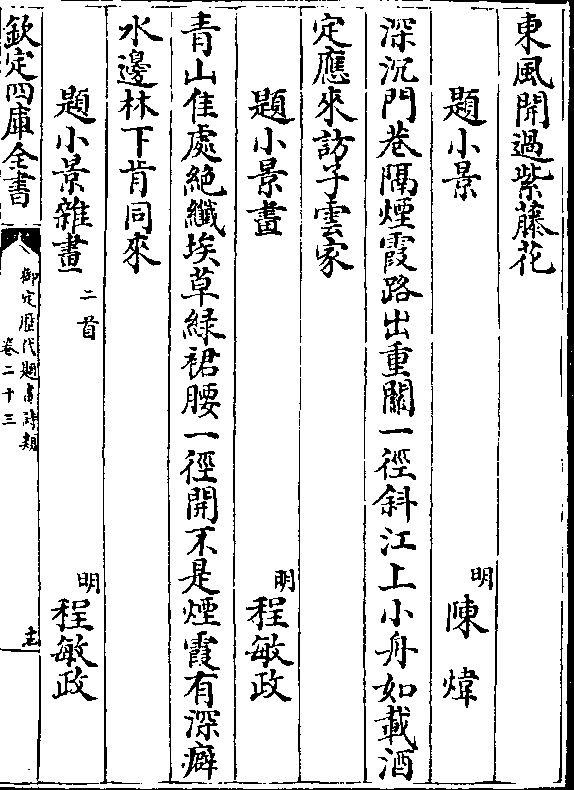 東風開過紫藤花
題小景
明
陳煒
深沉門巷隔煙霞路出重關一徑斜江上小舟如載酒
定應來訪子雲家
題小景畫
明
程敏政
青山佳處絶纖埃草緑裙腰一徑開不是煙霞有深癖
水邊林下肯同來
題小景雜畫
二首
明
程敏政
欽定四庫全書
御定歴代題畫詩類
卷二十三